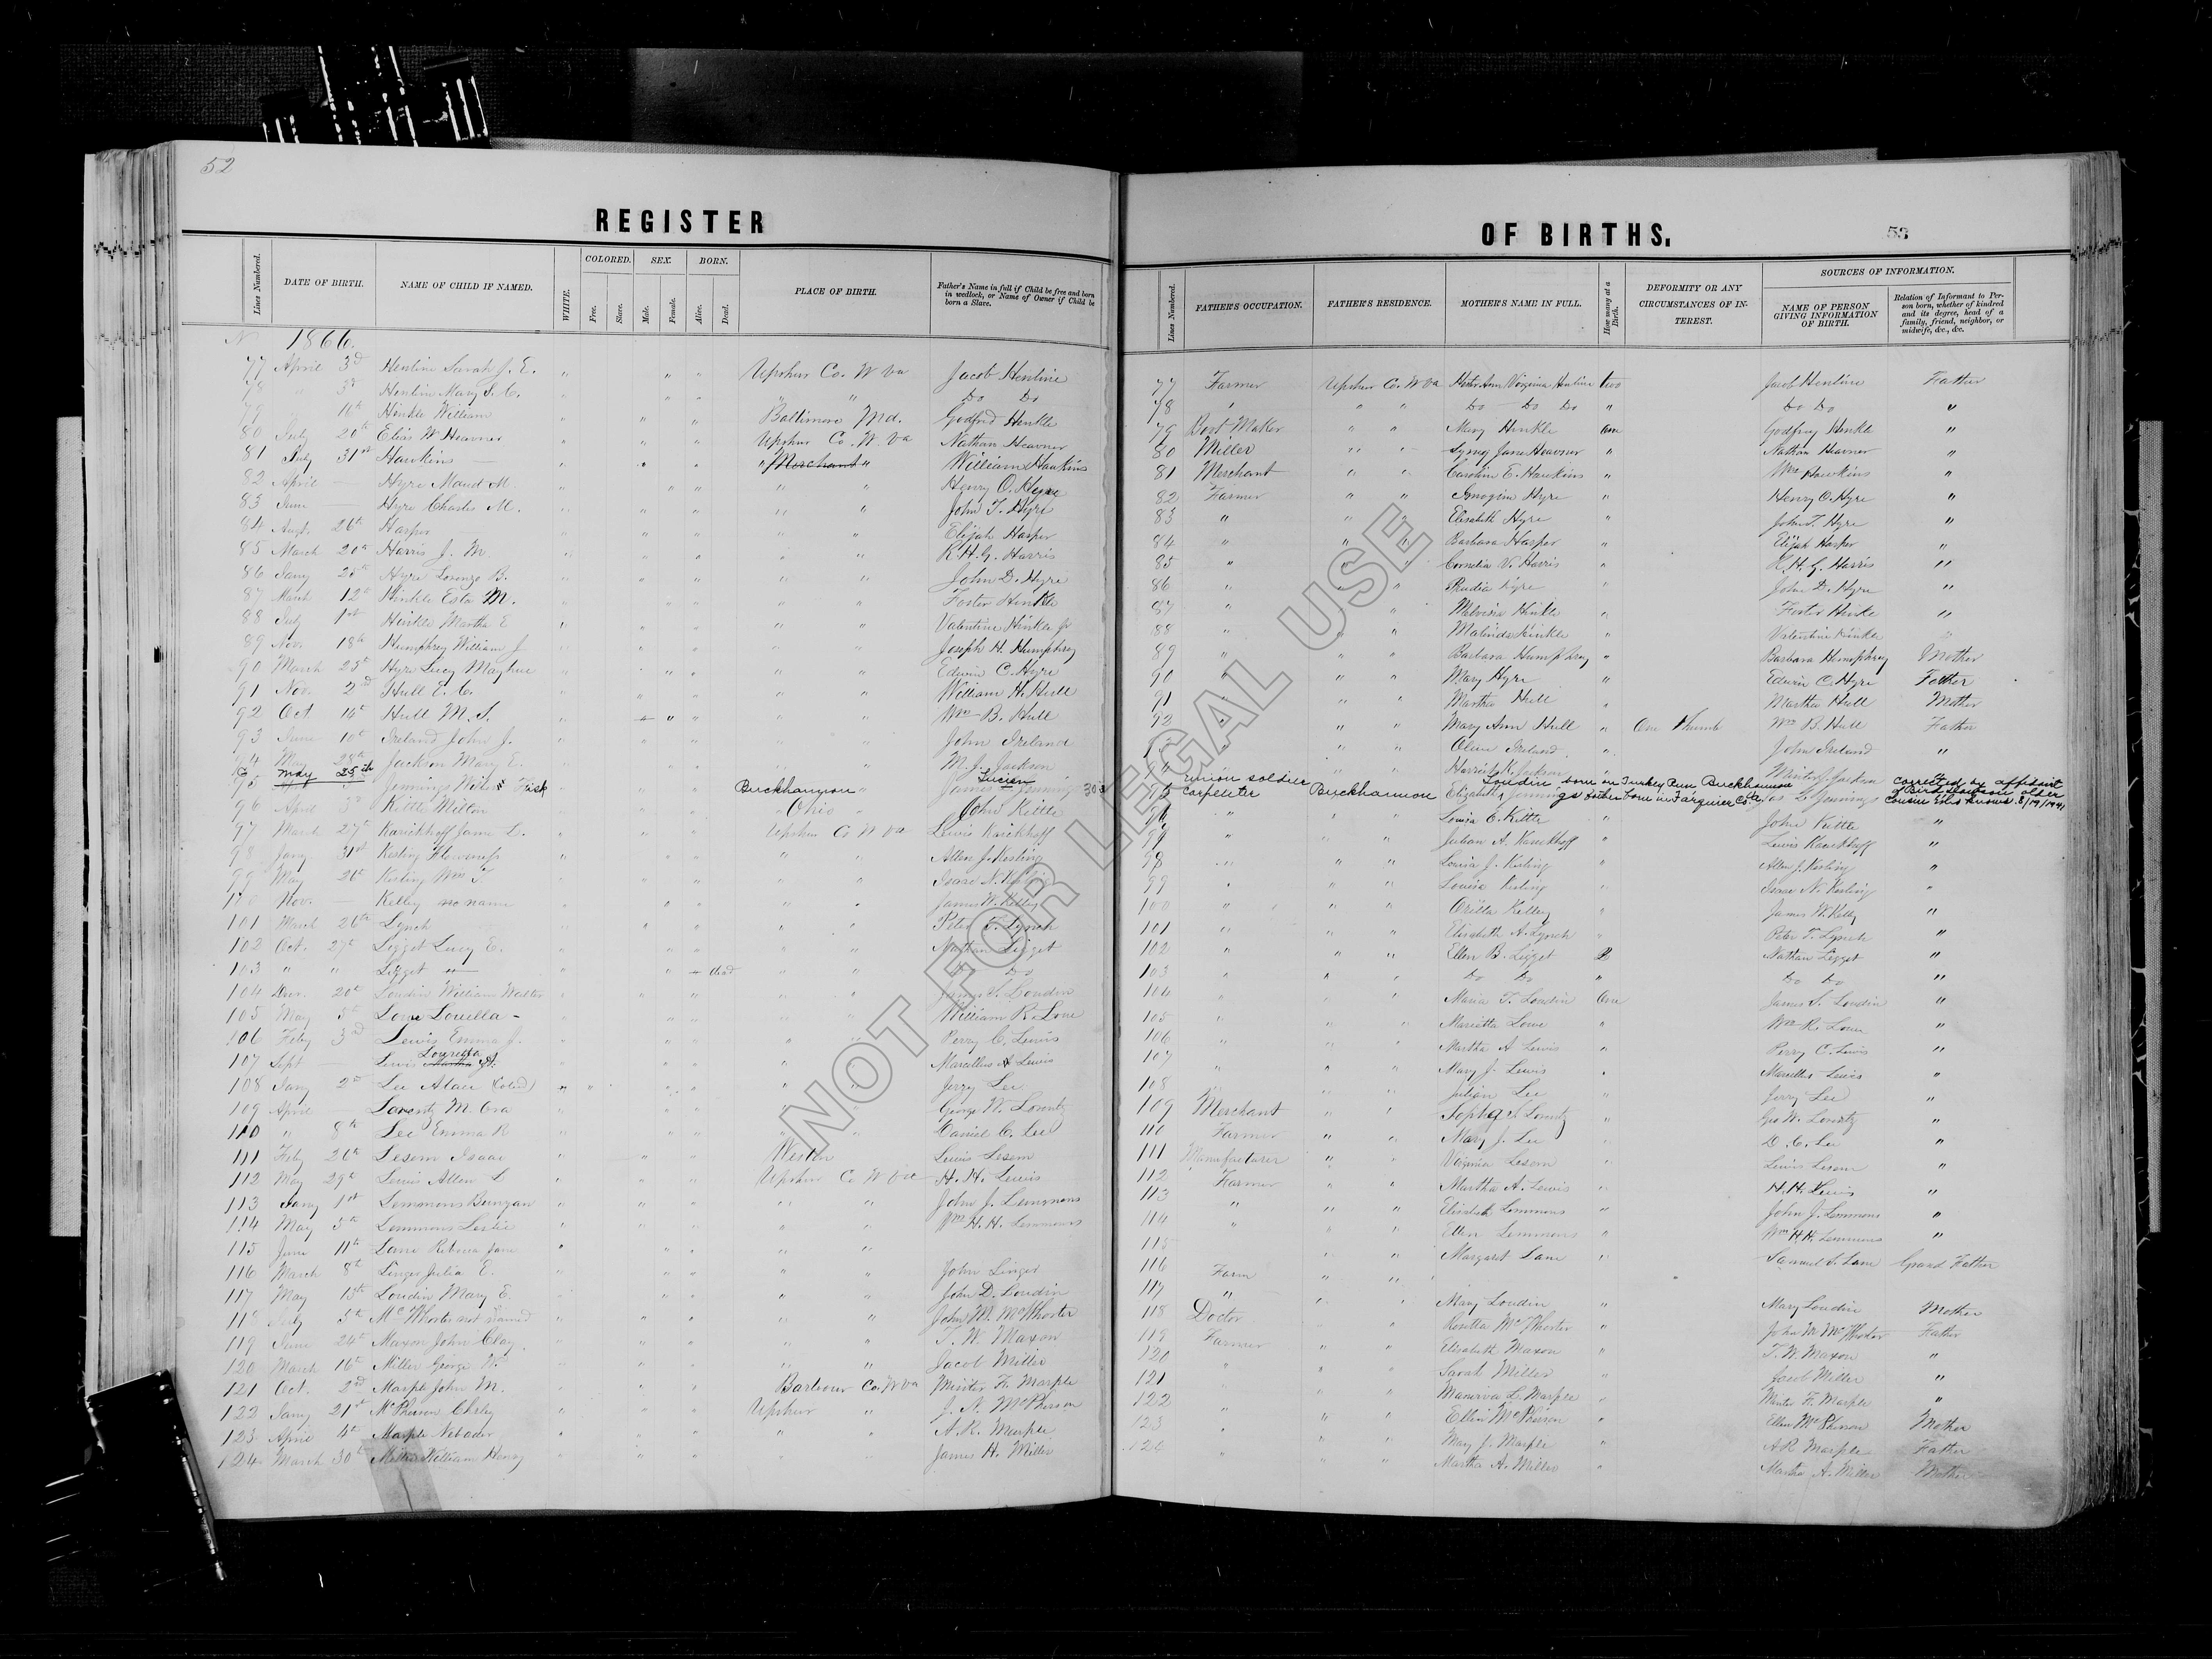 52
REGISTER
Lines Numbered.
DATE OF BIRTH.
NAME OF CHILD IF NAMED.
WHITE.
COLORED.
Free.
Slave.
SEX.
Male.
Female.
BORN.
Alive.
Dead.
PLACE OF BIRTH.
Father's Name in full if Child be free and born in wedlock, or Name of Owner if Child be born a Slave.
1866.
77 April 3d Henline Sarah J. E. " " " Upshur Co. W va Jacob Henline
78 " 3d Henline Mary S. C. " " " " " Do Do
79 " 16th Hinkle William " " " Baltimore Md. Godfred Hinkle
80 July 20th Elias W Heavner " " " Upshur Co. W. Va Nathan Heavner
81 July 31st Hawkins — " " " " Merchant " William Hawkins
82 April — Hyre Maud M. " " " " " Henry O. Hyre
83 June — Hyre Charles M. " " " " " John T. Hyre
84 Augt. 26th Harper " " " " " Elijah Harper
85 March 20th Harris J. M. " " " " " R. H. G. Harris
86 Jany 25th Hyre Lorenzo B. " " " " " John D. Hyre
87 March 12th Hinkle Esta M. " " " " " Foster Hinkle
88 July 1st Hinkle Martha E " " " " " Valentine Hinkle Jr
89 Nov. 18th Humphrey William J. " " " " " Joseph H. Humphrey
90 March 25th Hyre Lucy Mayhue " " " " " Edwin C. Hyre
91 Nov. 2nd Hull E. C. " " " " " William H. Hull
92 Oct 16th Hull M. S. " " " " " Wm B. Hull
93 June 10th Ireland John J. " " " " " John Ireland
94 May 28th Jackson Mary E. " " " " " M. J. Jackson
95 May 25th Jennings Fisk " " " Buckhannon " James Lucien Jennings
96 April 3d Kittle Milton " " " Ohio " John Kittle
97 March 27th Karickhoff Jame L. " " " Upshur Co W va Lewis Karickhoff
98 Jany 31st Kesling " " " " " Allen J. Kesling
99 May 26th Kesling Wm T. " " " " " Isaac N. Kesling
100 Nov. — Kelley no name " " " " " James W. Kelley
101 March 26th Lynch " " " " " Peter T. Lynch
102 Oct. 27th Ligget Lucy E. " " " " " Nathan Ligget
103 " " Ligget " " dead " " Do
104 Decr. 20th Loudin William Walter " " " " " James S. Loudin
105 May 5th Lowe Louella — " " " " " William R. Lowe
106 Feby 3rd Lewis Emma J. " " " " " Perry C. Lewis
107 Sept — Lewis Martha Louretta A. " " " " " Marcellus A Lewis
108 Jany 2nd Lee Alace (Cold) " " " " " Jerry Lee
109 April — Lorentz M. Ora " " " " " George W. Lorentz
110 " 8th Lee Emma R " " " " " Daniel C. Lee
111 Feby 26th Lesem Isaac " " " Weston Lewis Lesem
112 May 29th Lewis Allen L " " " Upshur Co W Va H. H. Lewis
113 Jany 1st Lemmons Bunyan " " " " " John J. Lemmons
114 May 5th Lemmons Leslie " " " " " Wm H. H. Lemmons
115 June 11th Lane Rebecca Jane " " " " "
116 March 8th Linger Julia E. " " " " " John Linger
117 May 15th Loudin Mary E. " " " " " John D. Loudin
118 July 5th McWhorter not named " " " " " John M. McWhorter
119 June 24th Maxson John Clay " " " " " T. W. Maxson
120 March 16th Miller George W. " " " " " Jacob Miller
121 Oct. 2nd Marple John M. " " " Barbour Co. W va Minter F. Marple
122 Jany 21st McPherson Chrley " " " Upshur " J. A. McPherson
123 April 4th Marple " " " " " A. R. Marple
124 March 30th Miller William Henry " " " " " James H. Miller
OF BIRTHS.
53
Lines Numbered.
FATHER'S OCCUPATION.
FATHER'S RESIDENCE.
MOTHER'S NAME IN FULL.
How many at a Birth.
DEFORMITY OR ANY CIRCUMSTANCES OF INTEREST.
SOURCES OF INFORMATION.
NAME OF PERSON GIVING INFORMATION OF BIRTH.
Relation of Informant to Person born, whether of kindred and its degree, head of a family, friend, neighbor, or midwife, &c., &c.
77 Farmer Upshur Co. W va Hester Ann Virginia Henline two Jacob Henline Father
78 " " " Do Do Do " Do Do "
79 Boot Maker " " Mary Hinkle One Godfrey Hinkle "
80 Miller " " Jane Heavner " Nathan Heavner "
81 Merchant " " Caroline E. Hawkins " Wm Hawkins "
82 Farmer " " Imogine Hyre " Henry O. Hyre "
83 " " " Elisabeth Hyre " John T. Hyre "
84 " " " Barbara Harper " Elijah Harper "
85 " " " Cornelia V. Harris " R. H. G. Harris "
86 " " " Hyre " John D. Hyre "
87 " " Hinkle " Foster Hinkle "
88 " " " Malinda Hinkle " Valentine Hinkle "
89 " " " Barbara Humphrey " Barbara Humphrey Mother
90 " " " Mary Hyre " Edwin C. Hyre Father
91 " " " Martha Hull " Martha Hull Mother
92 " " " Mary Ann Hull " One Thumb Wm B. Hull Father
" " " Olive Ireland " John Ireland "
" " " Harriet K. Jackson " Jackson "
Union soldier Carpenter Buckhannon Elizabeth Loudin Jennings born on Turkey Run, Buckhannon father born in Farquier Co Va. Jas L Jennings corrected by affidavit of Bird older cousin who knows. 8/19/1941
96 " " " Louisa C. Kittle " John Kittle "
97 " " " Julian A. Karickhoff " Lewis Karickhoff "
98 " " " Louisa J. Kesling " Allen J. Kesling "
99 " " " Louisa Kesling " Isaac N. Kesling "
100 " " " Orilla Kelley " James W. Kelly "
101 " " " Elisabeth A. Lynch " Peter T. Lynch "
102 " " " Ellen B. Ligget 2 Nathan Ligget "
103 " " " Do Do " Do Do "
104 " " " Maria T. Loudin One James S. Loudin "
105 " " " Marietta Lowe " Wm R. Lowe "
106 " " " Martha A Lewis " Perry C. Lewis "
107 " " " Mary J. Lewis " Marcellus Lewis "
108 " " " Julian Lee " Jerry Lee "
109 Merchant " " Lorentz " Geo W. Lorentz "
110 Farmer " " Mary J. Lee " D. C. Lee "
111 Manufacturer " " Virginia Lesem " Lewis Lesem "
112 Farmer " " Martha A. Lewis " H. H. Lewis "
113 " " " Elisabeth Lemmons " John J. Lemmons "
114 " " " Ellen Lemmons " Wm H. H. Lemmons "
115 " " Margaret Lane " Samuel S. Lane Grand Father
116 Farm " "
117 " " " Mary Loudin " Mary Loudin Mother
118 Doctor " " Rosetta McWhorter " John M McWhorter Father
119 Farmer " " Elisabeth Maxson " T. W. Maxson "
120 " " " Sarah Miller " Jacob Miller "
121 " " Manerva L. Marple " Minter F. Marple "
122 " " " Ellen McPherson " Ellen McPherson Mother
123 " " " Mary J. Marple " A R Marple Father
124 " " " Martha A. Miller " Martha A. Miller Mother
NOT FOR LEGAL USE